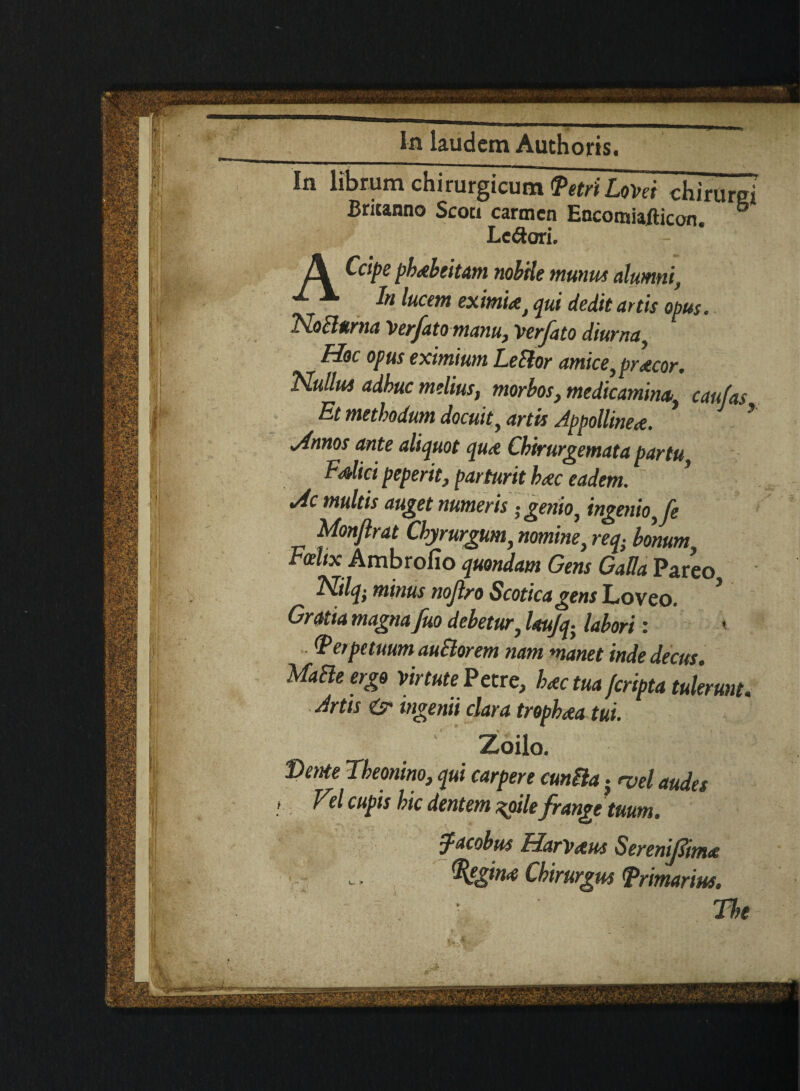 In laudem Authoris.
In librum chirurgicum Petri Lovei chirurgi
Britanno Scoti carmen Encomiaſticon.
Lectori.
ACcipe phæbeitam nobile munus alumni,
In lucem eximiæ, qui dedit artis opus.
Nocturna verſato manu, verſato diurna,
Hoc opus eximium Lector amice, præcor.
Nullus adhuc melius, morbos, medicamina, cauſas,
Et methodum docuit, artis Appollineæ.
Annos ante aliquot quæ Chirurgemata partu,
Fælici peperit, parturit hæc eadem.
Ac multis auget numeris; genio, ingenio, ſe
Monſtrat Chyrurgum, nomine, req; bonum,
Fœlix Ambroſio quondam Gens Galla Pareo,
Nilq; minus noſtro Scotica gens Loveo.
Gratia magna ſuo debetur, lauſq; labori:
Perpetuum auctorem nam manet inde decus.
Macte ergo virtute Petre, hæc tua ſcripta tulerunt.
Artis & ingenii clara trophæa tui.
Zoilo.
Dente Theonino, qui carpere cuncta; vel audes
Vel cupis hic dentem zoile frange tuum.
Jacobus Harvæus Sereniſsimæ
Reginæ Chirurgus Primarius.
The